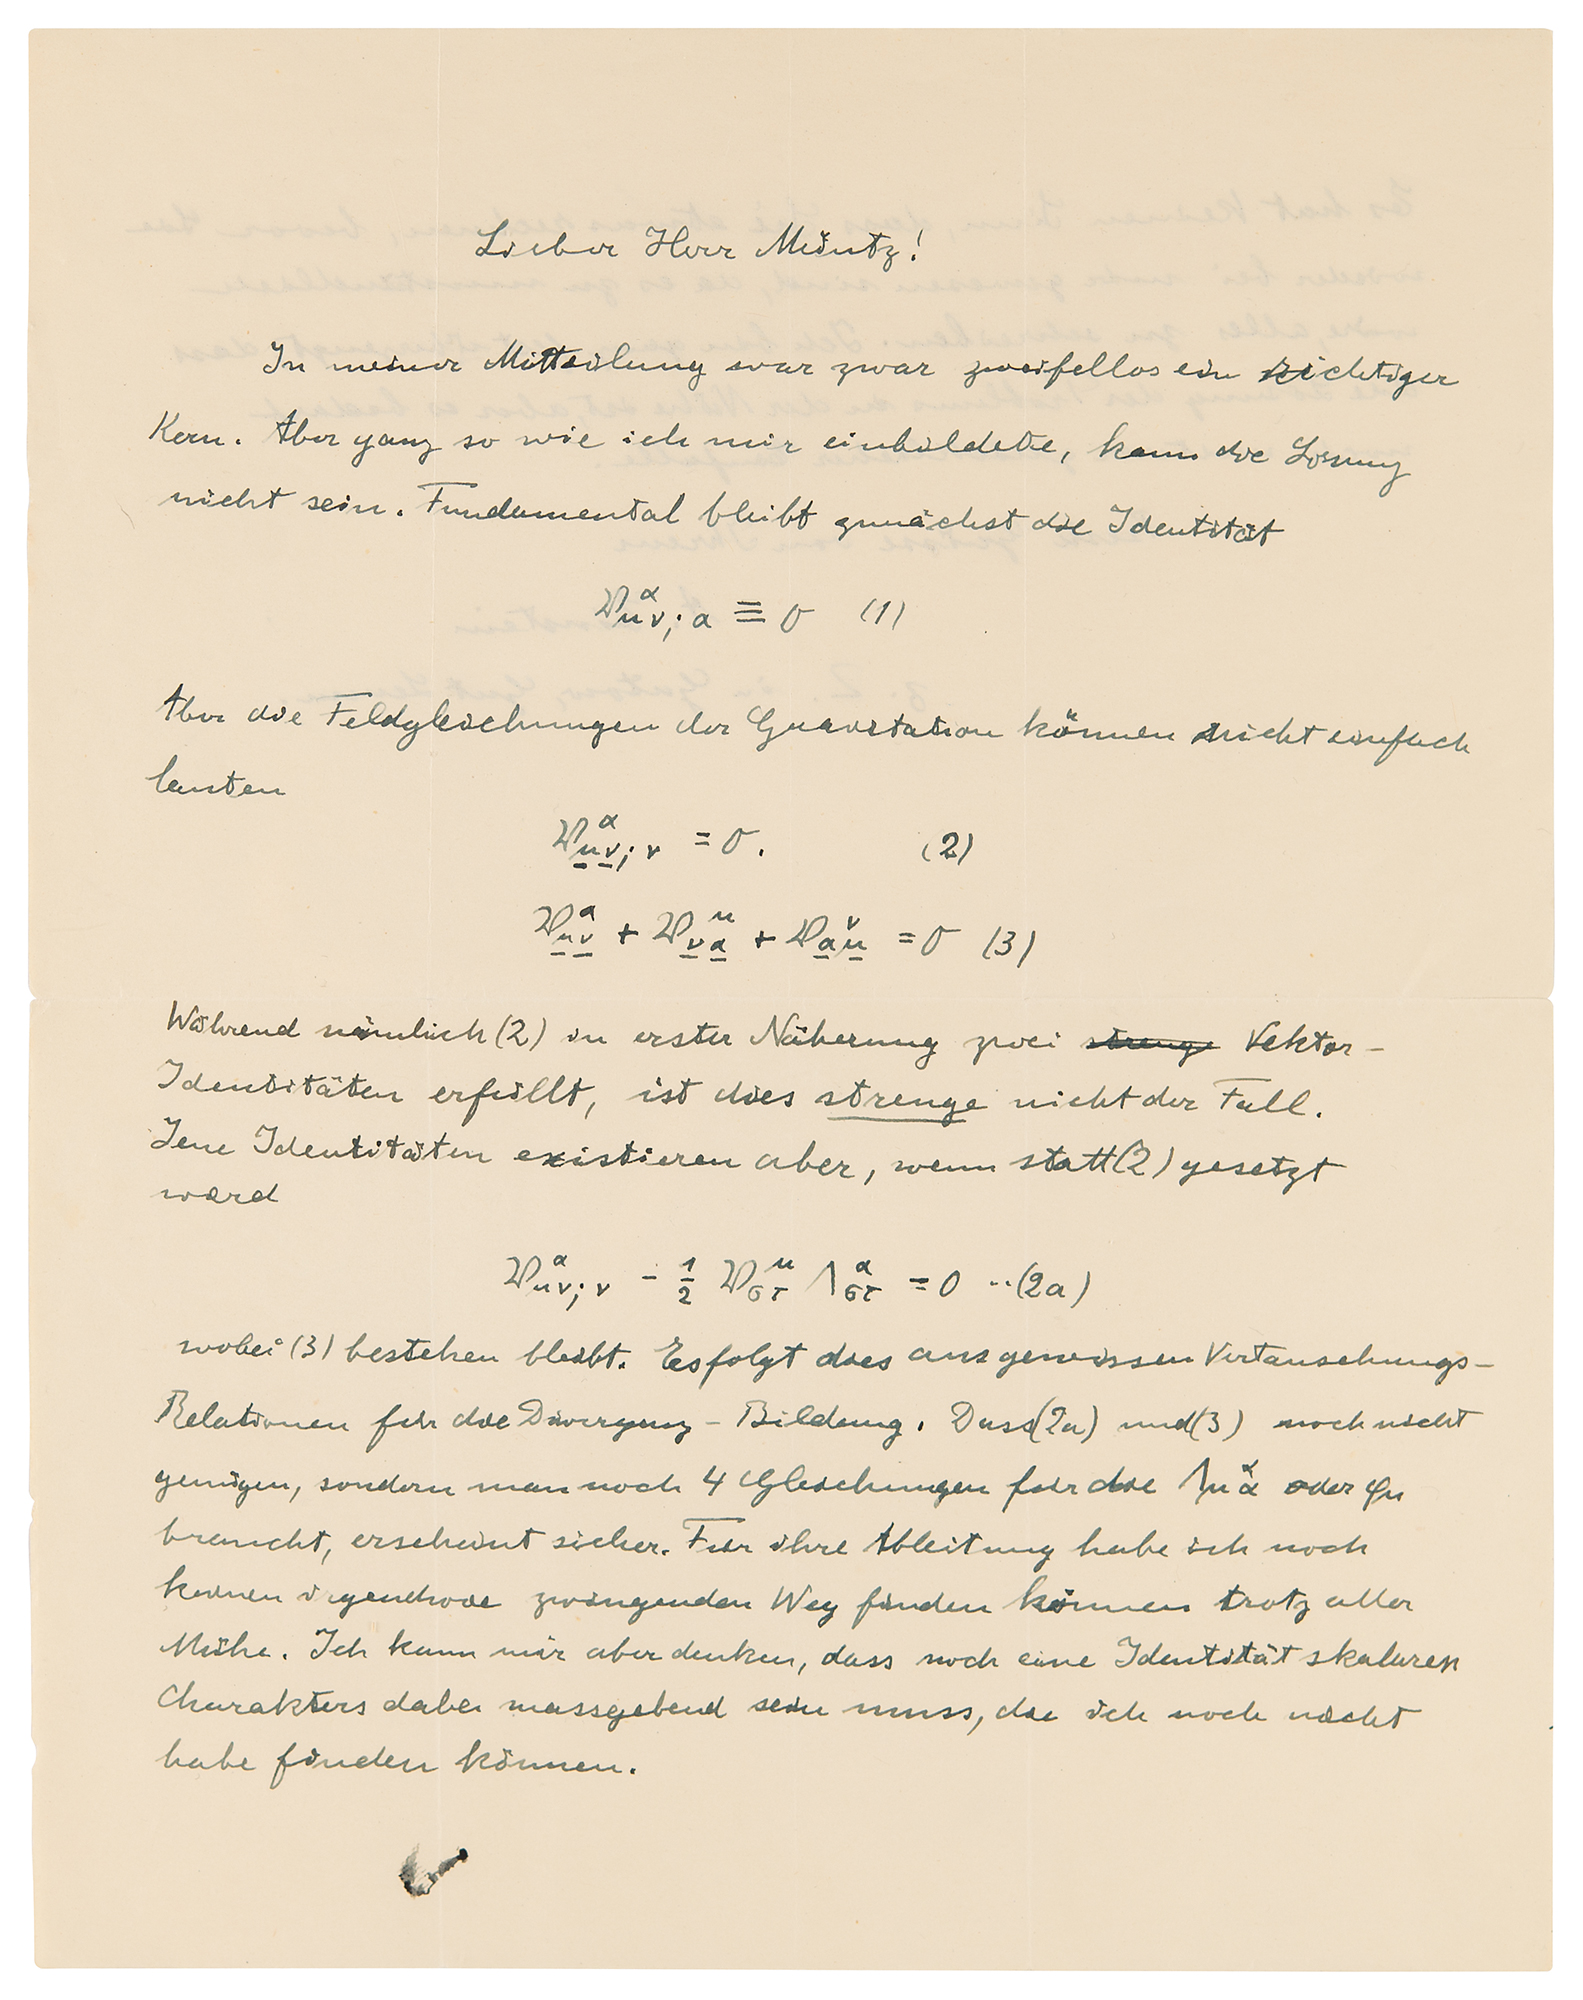 Lieber Herr Müntz!
In meiner Mitteilung war zwar zweifellos ein richtiger
Kern. Aber ganz so wie ich mir einbildete, kann die Lösung
nicht sein. Fundamental bleibt zunächst die Identität
𝔅_{μν;α}^{α} ≡ 0 (1)
Aber die Feldgleichungen der Gravitation können nicht einfach
lauten
𝔅_{μ̲ν̲;ν}^{α} = 0. (2)
𝔅_{μ̲ν̲}^{α} + 𝔅_{ν̲α̲}^{μ} + 𝔅_{α̲μ̲}^{ν} = 0 (3)
Während nämlich (2) in erster Näherung zwei ~~strenge~~ Vektor-
Identitäten erfüllt, ist dies strenge nicht der Fall.
Jene Identitäten existieren aber, wenn statt (2) gesetzt
wird
𝔅_{μν;ν}^{α} - 1/2 𝔅_{στ}^{μ} Λ_{στ}^{α} = 0 ··(2a)
wobei (3) bestehen bleibt. Es folgt dies aus gewissen Vertauschungs-
Relationen für die Divergenz-Bildung. Dass (2a) und (3) noch nicht
genügen, sondern man noch 4 Gleichungen für die Λ_{μα}^{α} oder φ_μ
braucht, erscheint sicher. Für ihre Ableitung habe ich noch
keinen irgendwie zwingenden Weg finden können trotz aller
Mühe. Ich kann mir aber denken, dass noch eine Identität skalaren
Charakters dabei massgebend sein muss, die ich noch nicht
habe finden können.